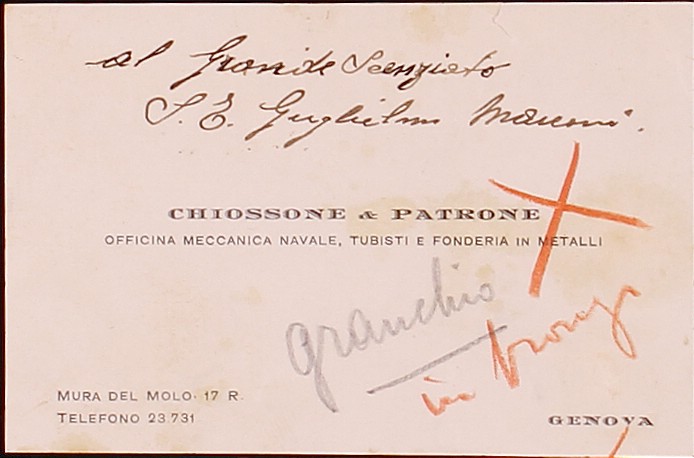 al Grande Scenziato
S. E. Guglielmo Marconi.
CHIOSSONE & PATRONE
OFFICINA MECCANICA NAVALE, TUBISTI E FONDERIA IN METALLI
granchio
in bronzo
MURA DEL MOLO· 17 R.
TELEFONO 23.731
GENOVA